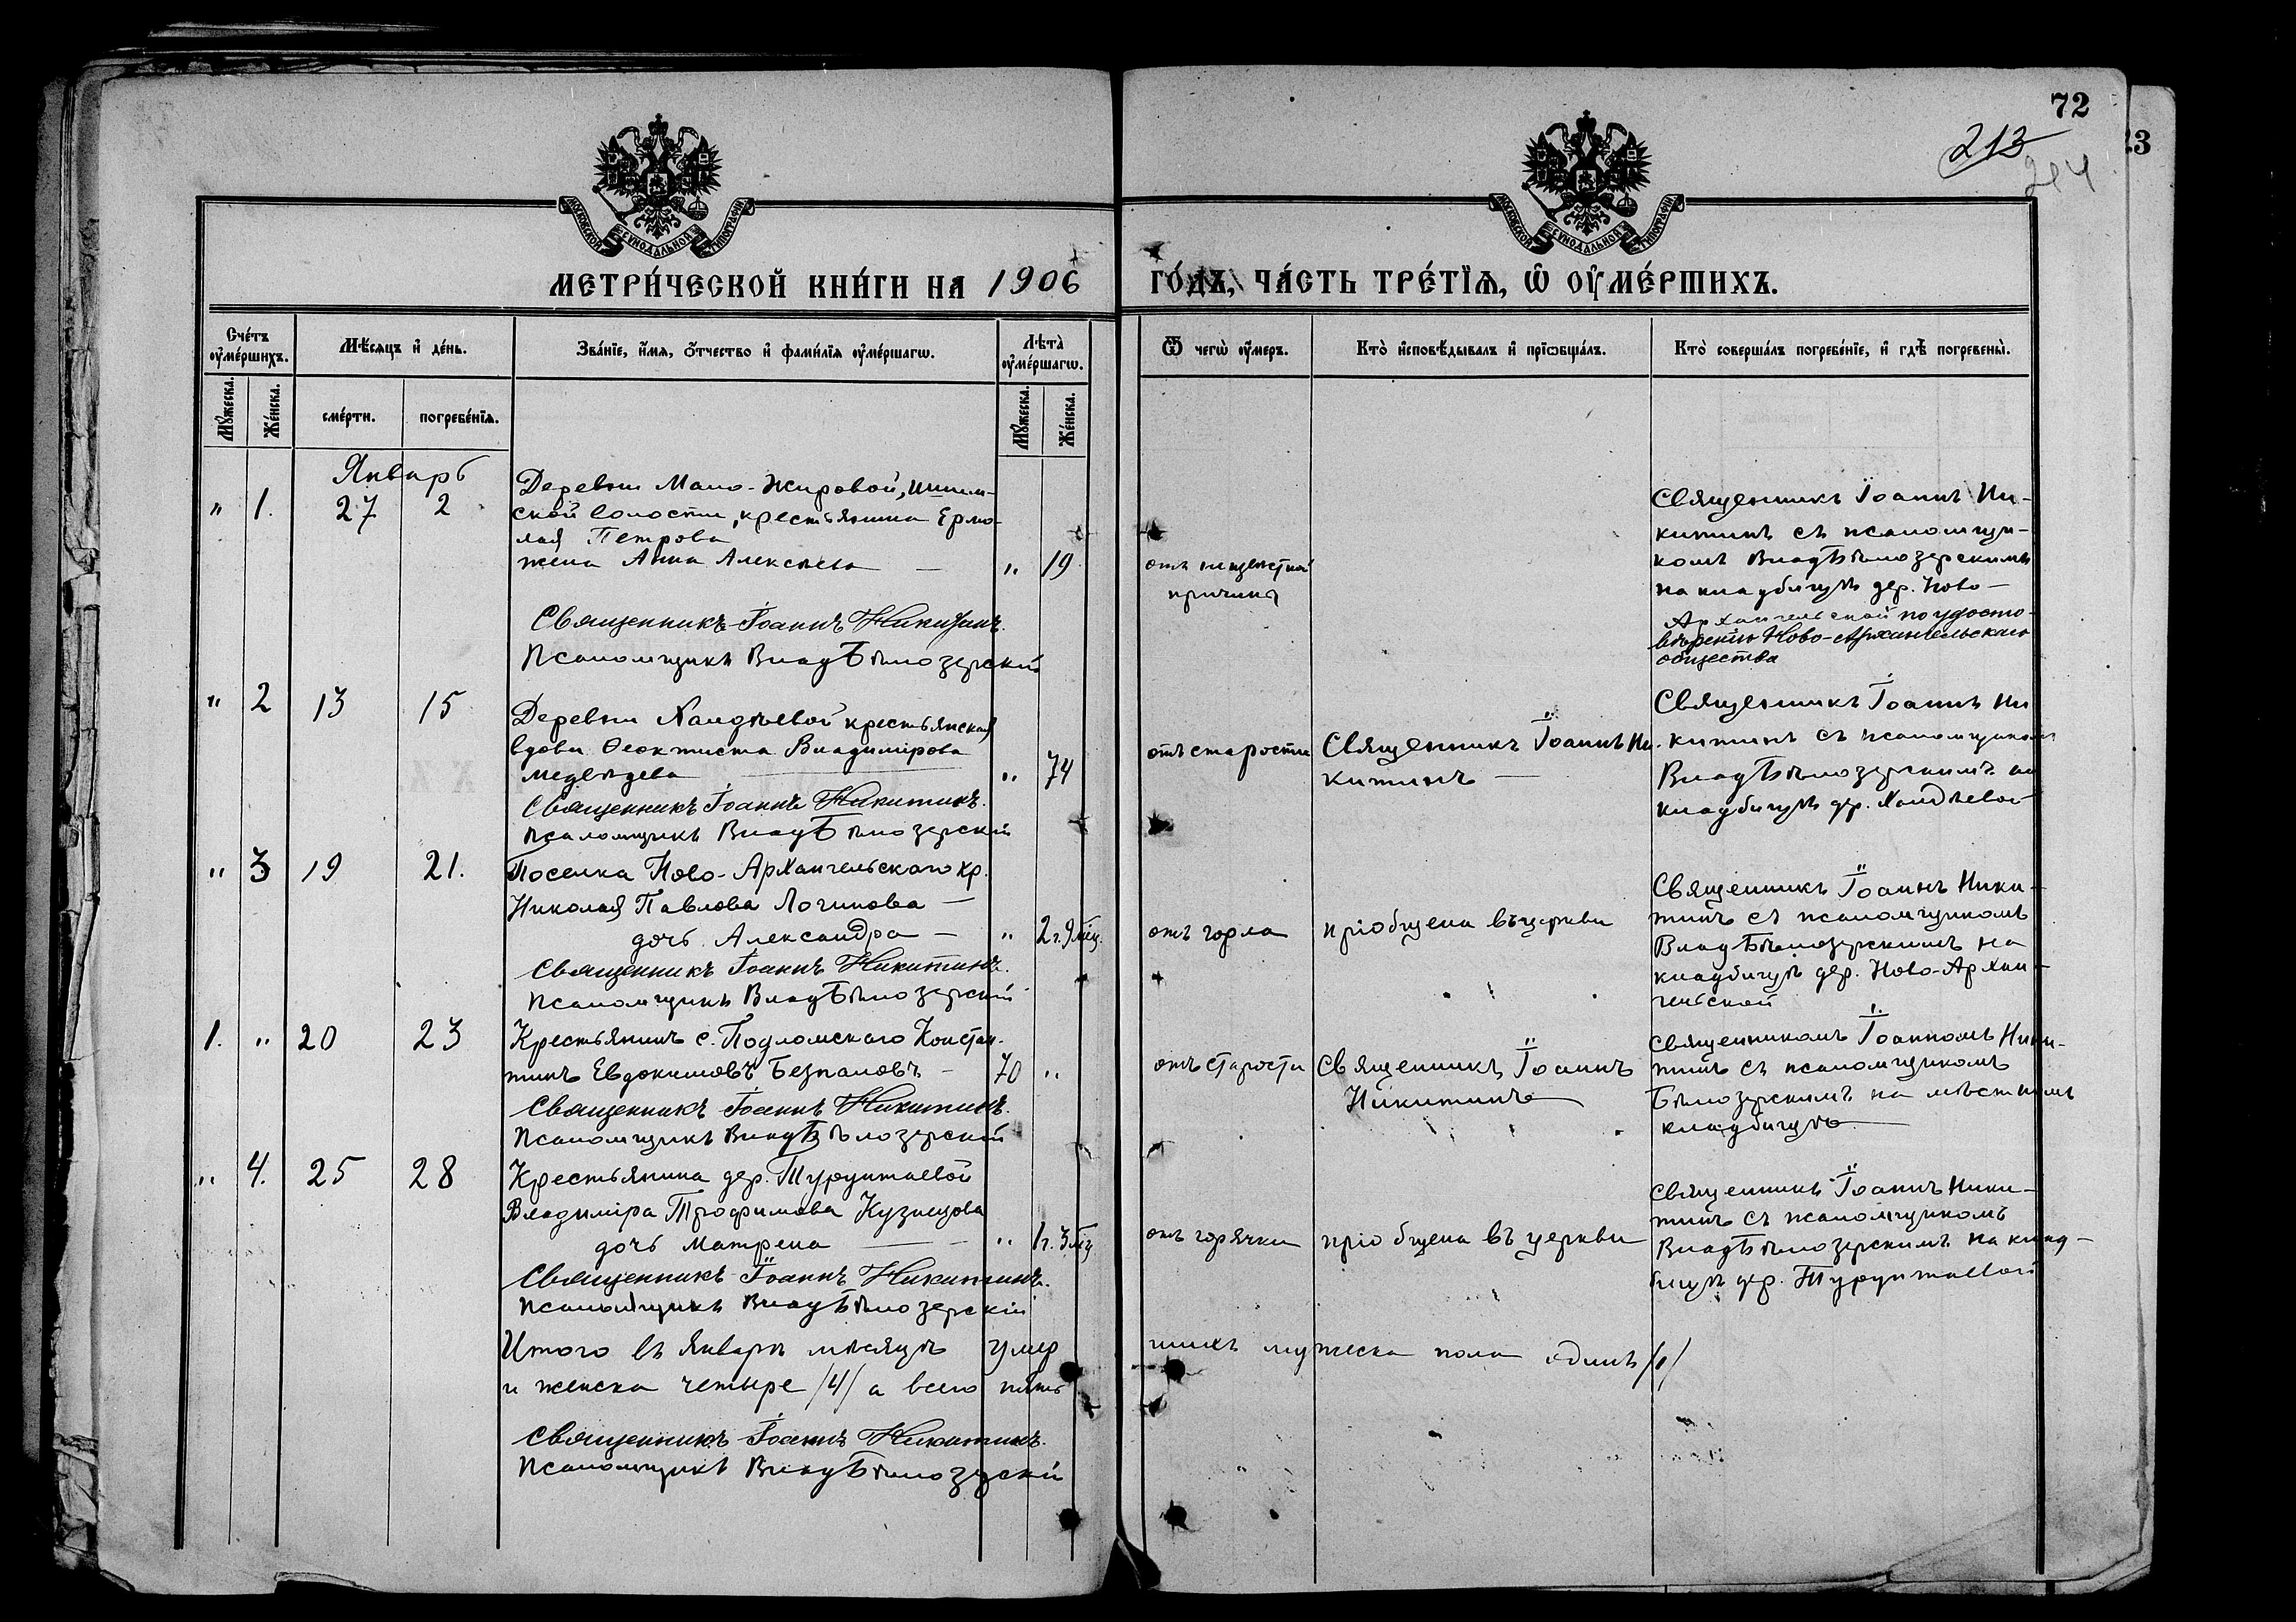 72
213
214
23
МОСКОВСКОЙ СѴНОДАЛЬНОЙ ТИПОГРАФІИ
МОСКОВСКОЙ СѴНОДАЛЬНОЙ ТИПОГРАФІИ
МЕТРИ́ЧЕСКОЙ КНИ́ГИ НА 1906 ГО́ДЪ, ЧА́СТЬ ТРЕ́ТЇѦ, Ѡ҆ ОУ҆МЕ́РШИХЪ.
Сче́тъ оу҆ме́ршихъ.
Мѣ́сяцъ и҆ де́нь.
Зва́нїе, и҆́мѧ, ѻ҆́тчество и҆ фами́лїѧ оу҆ме́ршагѡ.
Лѣ́та оу҆ме́ршагѡ.
Ѿ чегѡ̀ оу҆́меръ.
Кто̀ и҆сповѣ́дывалъ и҆ прїѡбща́лъ.
Кто̀ соверша́лъ погребе́нїе, и҆ гдѣ̀ погребены̀.
Мꙋ́жеска.
Же́нска.
сме́рти.
погребе́нїѧ.
Мꙋ́жеска.
Же́нска.
Январь
" 1. 27 2
Деревни Мало-Жировой,
ской волости, крестьянина Ермо-
лая Петрова
жена Анна Алексеева — " 19
Священникъ Іоаннъ Никитинъ.
Псаломщикъ Влад Бѣлозерскій
отъ неизвѣстной
причины
Священникъ Іоаннъ Ни-
китинъ съ псаломщи-
комъ Влад Бѣлозерскимъ
на кладбищѣ дер. Ново-
Архангельской по удосто-
вѣренію Ново-Архангельскаго
общества
" 2 13 15
Деревни Халдѣевой крестьянская
вдова Ѳеоктиста Владимірова
Медвѣдева — " 74
Священникъ Іоаннъ Никитинъ.
Псаломщикъ Влад Бѣлозерскій
отъ старости
Священникъ Іоаннъ Ни-
китинъ —
Священникъ Іоаннъ Ни
китинъ съ псаломщикомъ
Влад Бѣлозерскимъ на
кладбищѣ дер. Халдѣевой
" 3 19 21.
Поселка Ново-Архангельскаго кр.
Николая Павлова Логинова —
дочь Александра — " 2 г. 9 мѣс.
Священникъ Іоаннъ Никитинъ.
Псаломщикъ Влад Бѣлозерскій
отъ горла
пріобщена въ церкви
Священникъ Іоаннъ Ники-
тинъ съ псаломщикомъ
Влад Бѣлозерскимъ на
кладбищѣ дер. Ново-Архан-
гельской
1. " 20 23
Крестьянинъ с. Подломскаго Констан-
тинъ Евдокимовъ Безпаловъ — 70 "
Священникъ Іоаннъ Никитинъ.
Псаломщикъ Влад Бѣлозерскій
отъ старости
Священникъ Іоаннъ
Никитинъ
Священникомъ Іоанномъ Ники-
тинъ съ псаломщикомъ
Бѣлозерскимъ на мѣстномъ
кладбищѣ
" 4. 25 28
Крестьянина дер. Турунтаевой
Владиміра Трофимова Кузнецова
дочь Матрена — " 1 г. 3 мѣс
Священникъ Іоаннъ Никитинъ.
Псаломщикъ Влад Бѣлозерскій
отъ горячки
пріобщена въ церкви
Священникъ Іоаннъ Ники-
тинъ съ псаломщикомъ
Влад Бѣлозерскимъ на клад-
бищѣ дер. Турунтаевой
Итого въ Январѣ мѣсяцѣ умер шихъ мужеска пола одинъ /1/
и женска четыре /4/ а всего пять
Священникъ Іоаннъ Никитинъ.
Псаломщикъ Влад Бѣлозерскій